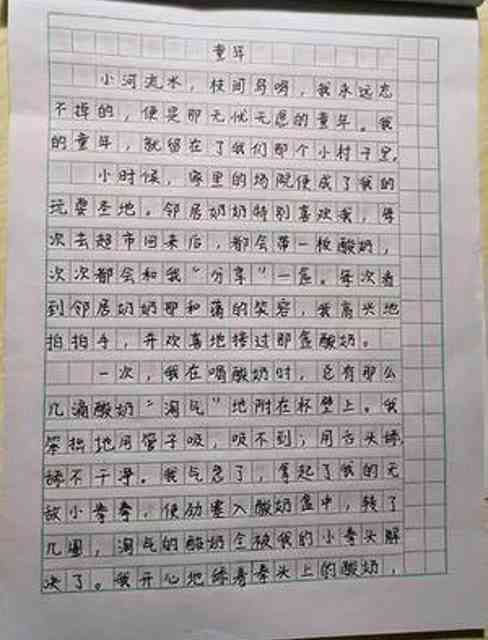 童年
小河流水，枝间鸟鸣，我永远忘
不掉的，便是那无忧无愿的童年。我
的童年，就留在了我们那个小村子里。
小时候，家里的场院便成了我的
玩耍圣地。邻居奶奶特别喜欢我，每
次去超市回来后，都会带一板酸奶，
次次都会和我“分享”一盒。每次看
到邻居奶奶那和蔼的笑容，我高兴地
拍拍手，开欢喜地接过那盒酸奶。
一次，我在喝酸奶时，总有那么
几滴酸奶“淘气”地附在杯壁上。我
笨拙地用管子吸，吸不到；用舌头舔，
舔不干净。我气急了，拿起了我的无
敌小拳拳，使劲塞入酸奶盒中，转了
几圈，淘气的酸奶全被我的小拳头解
决了。我开心地舔着拳头上的酸奶，